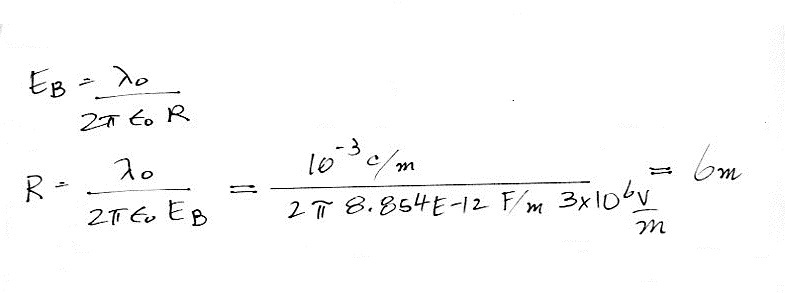 E_B = λ₀ / (2π ε₀ R)
R = λ₀ / (2π ε₀ E_B) = 10⁻³ c/m / (2π 8.854E-12 F/m 3x10⁶ V/m) = 6m